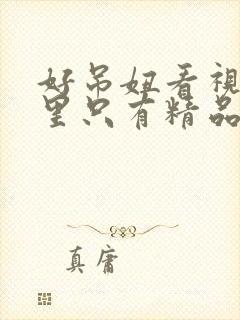 好吊妞看視
里只有精品
真庸